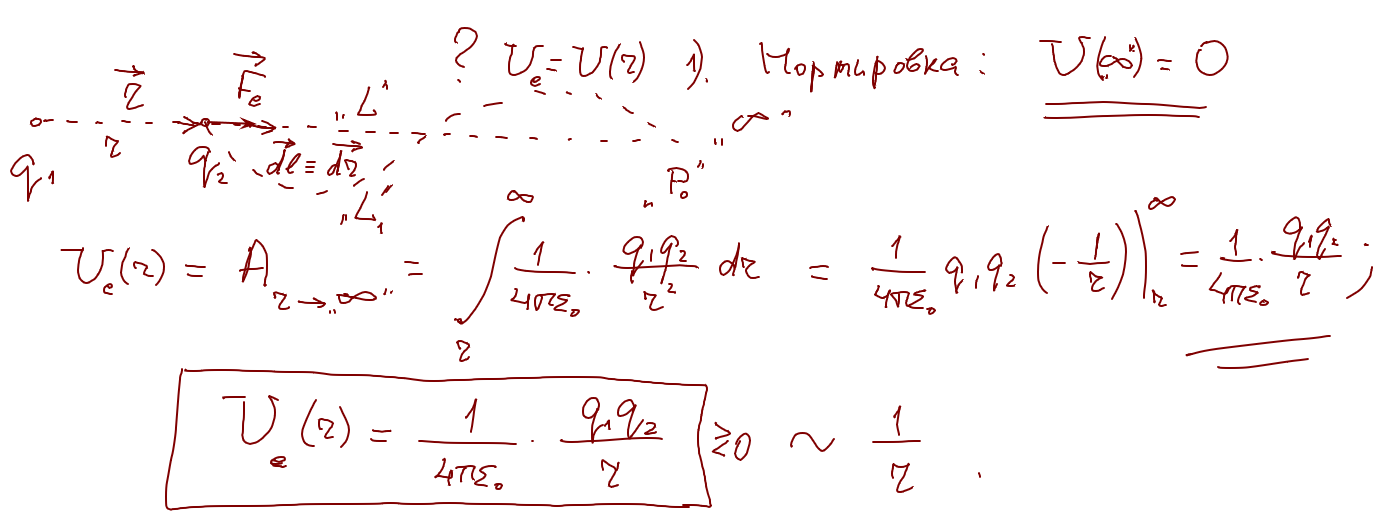 ? Uₑ = U(r) 1). Нормировка: U("∞") = 0
r⃗ F⃗ₑ "L" "∞"
q₁ r q₂ d⃗l ≡ d⃗r "L₁" "P₀"
Uₑ(r) = A_{r→"∞"} = ∫_r^∞ 1/(4πε₀) · q₁q₂/r² dr = 1/(4πε₀) q₁q₂ (-1/r)|_r^∞ = 1/(4πε₀) · q₁q₂/r ;
Uₑ(r) = 1/(4πε₀) · q₁q₂/r ≷ 0 ~ 1/r .